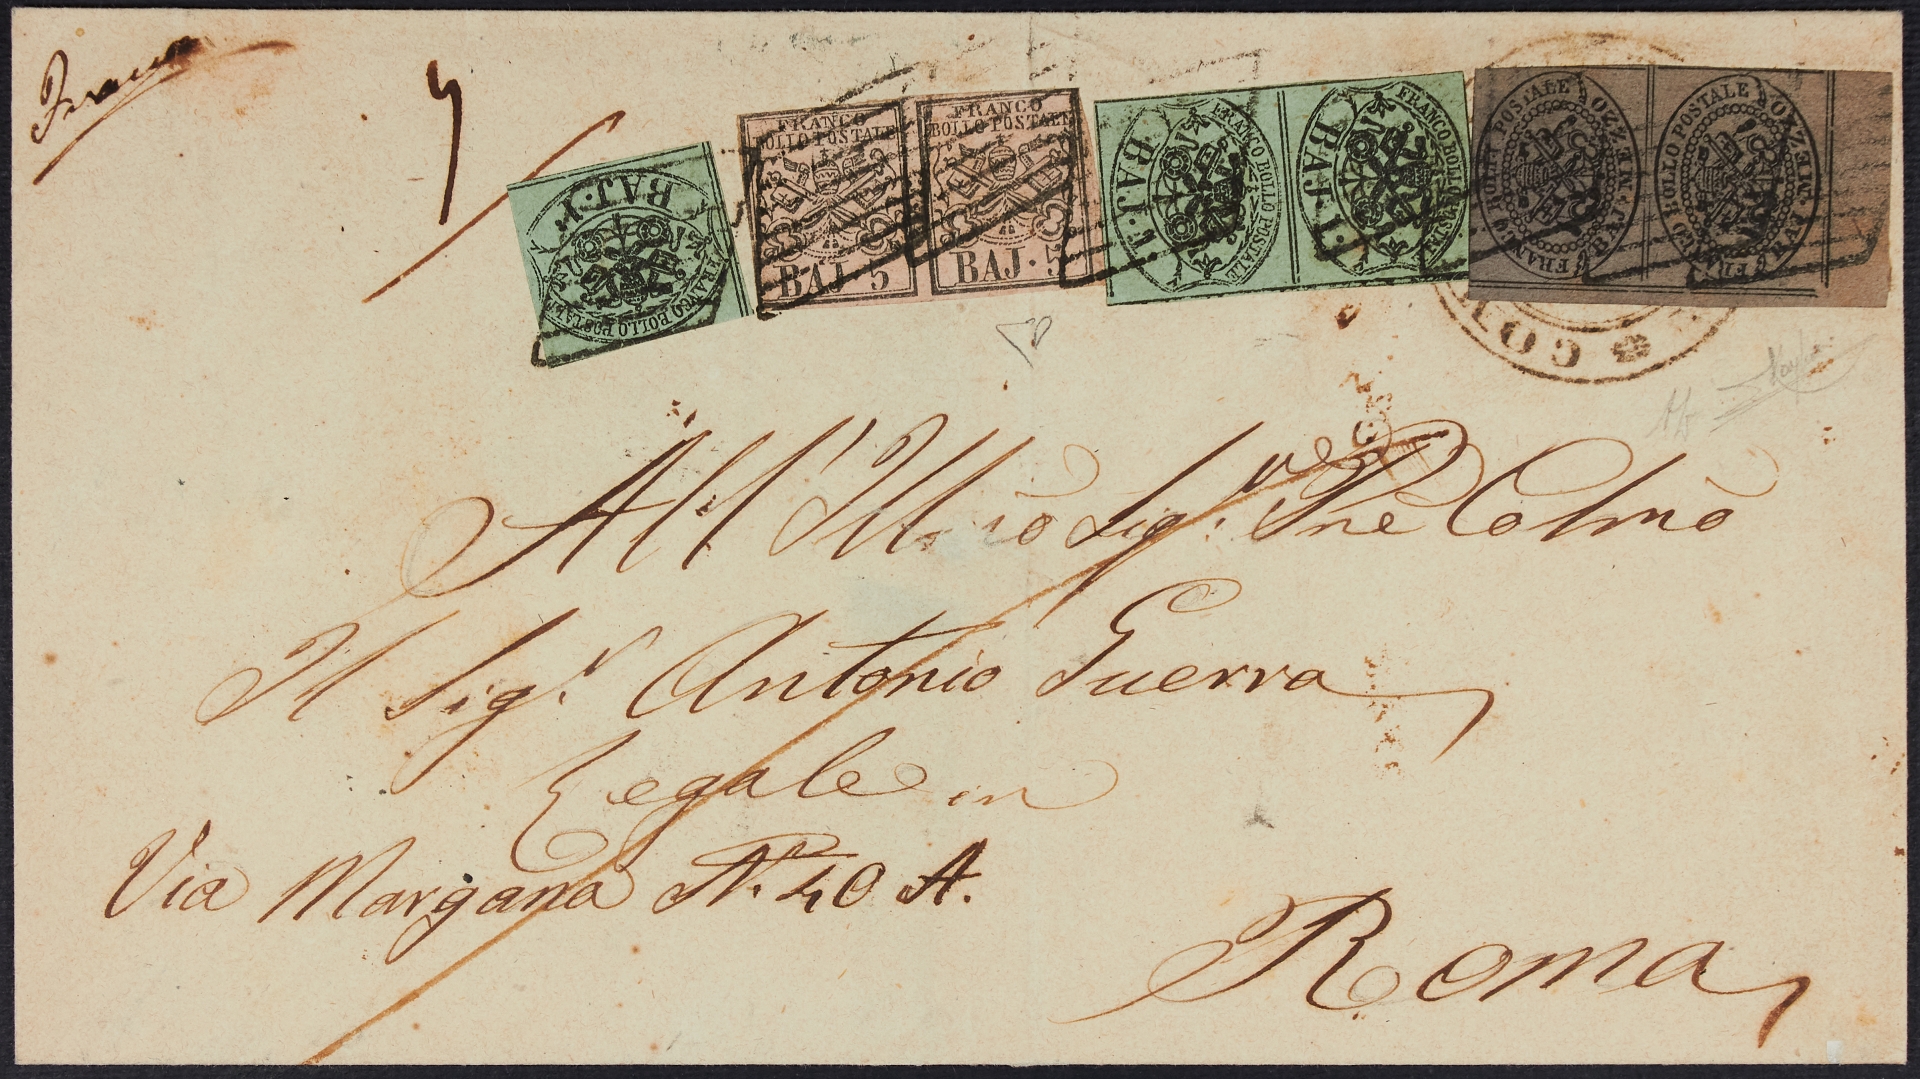 Franco
BAJ. 1.
FRANCO BOLLO POSTALE
FRANCO
BOLLO POSTALE
BAJ. 5
FRANCO
BOLLO POSTALE
BAJ. 5
BAJ. 1.
FRANCO BOLLO POSTALE
BAJ. 1.
FRANCO BOLLO
BOLLO POSTALE
MEZZO BAJ
FRANCO BOLLO POSTALE
MEZZO BAJ
All' Ill mo Sig.r Pne Colmo
Il Sig.r Antonio Guerra
Legale in
Via Margana N. 40 A.
Roma